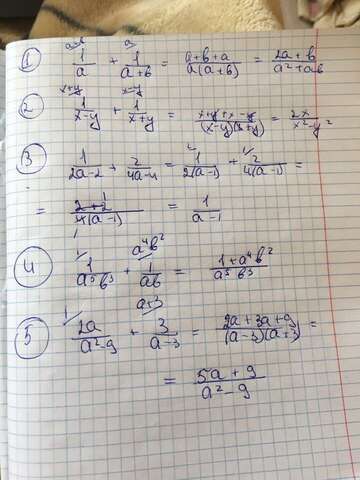 1 1/a + 1/a+b = a+b+a/a(a+b) = 2a+b/a²+ab
2 1/x-y + 1/x+y = x+y+x-y/(x-y)(x+y) = 2x/x²-y²
3 1/2a-2 + 2/4a-4 = 1/2(a-1) + 2/4(a-1) =
= 2+2/4(a-1) = 1/a-1
4 1/a⁵b³ + 1/ab = 1+a⁴b²/a⁵b³
5 2a/a²-9 + 3/a-3 = 2a+3a+9/(a-3)(a+3) =
= 5a+9/a²-9